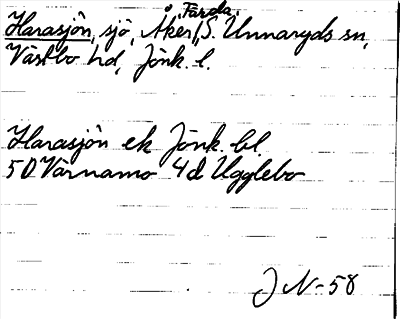 Färda,
Harasjön, sjö, Åker, S. Unnaryds sn,
Västbo hd, Jönk. l.
Harasjön ek Jönk. bl.
5D Värnamo 4d Ugglebo
J N-58